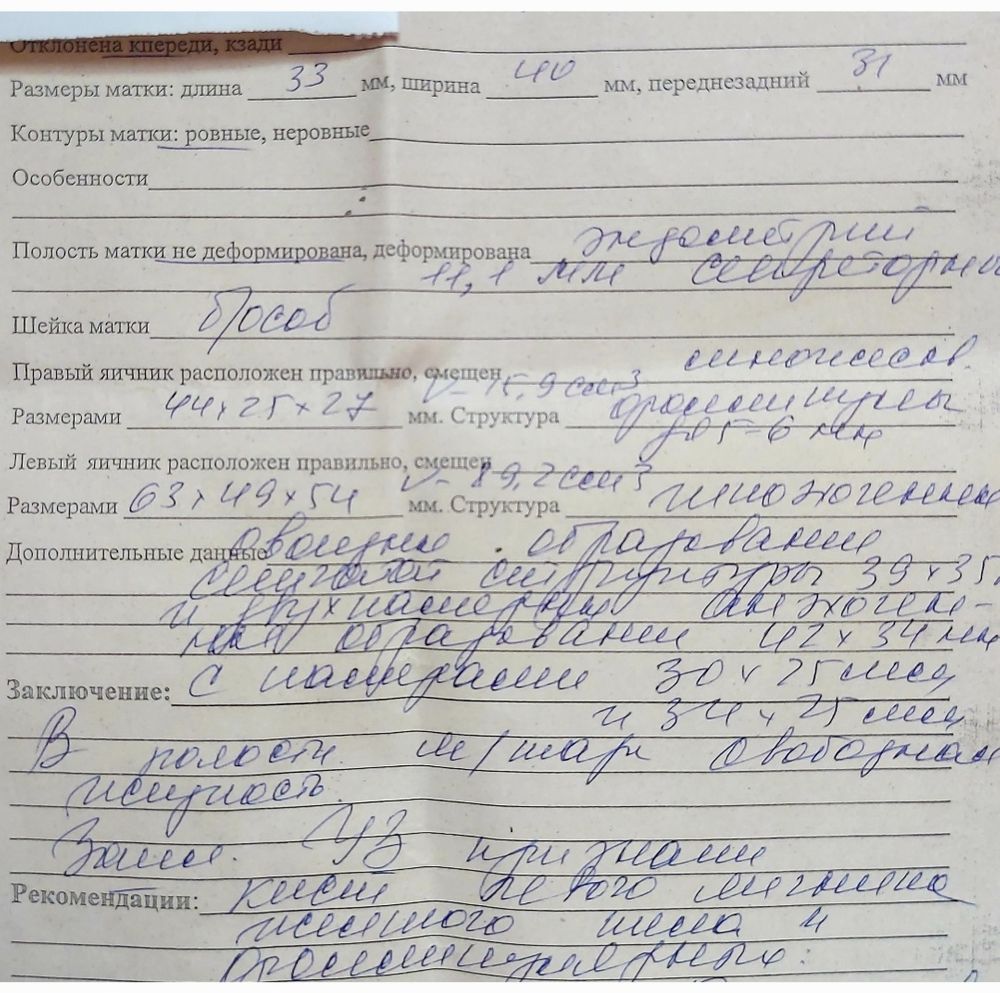 Отклонена кпереди, кзади
Размеры матки: длина 33 мм, ширина 40 мм, переднезадний 31 мм
Контуры матки: ровные, неровные
Особенности
Полость матки не деформирована, деформирована эндометрий
11,1 мм секреторный
Шейка матки б/особ
Правый яичник расположен правильно, смещен множеств.
V- 15,9 см3
Размерами 44х25х27 мм. Структура фолликулы
до 5-6 мм
Левый яичник расположен правильно, смещен
V- 89,2 см3
Размерами 63х49х54 мм. Структура гипоэхогенное
Дополнительные данные овоидное образование
сетчатой структуры 39х35
и двухкамерное анэхоген-
ное образование 42х34 мм
Заключение: с камерами 30х25 мм
и 34х25 мм
В полости м/таза свободная
жидкость
Закл. УЗ признаки
Рекомендации: кист левого яичника
желтого тела и
фолликулярных: